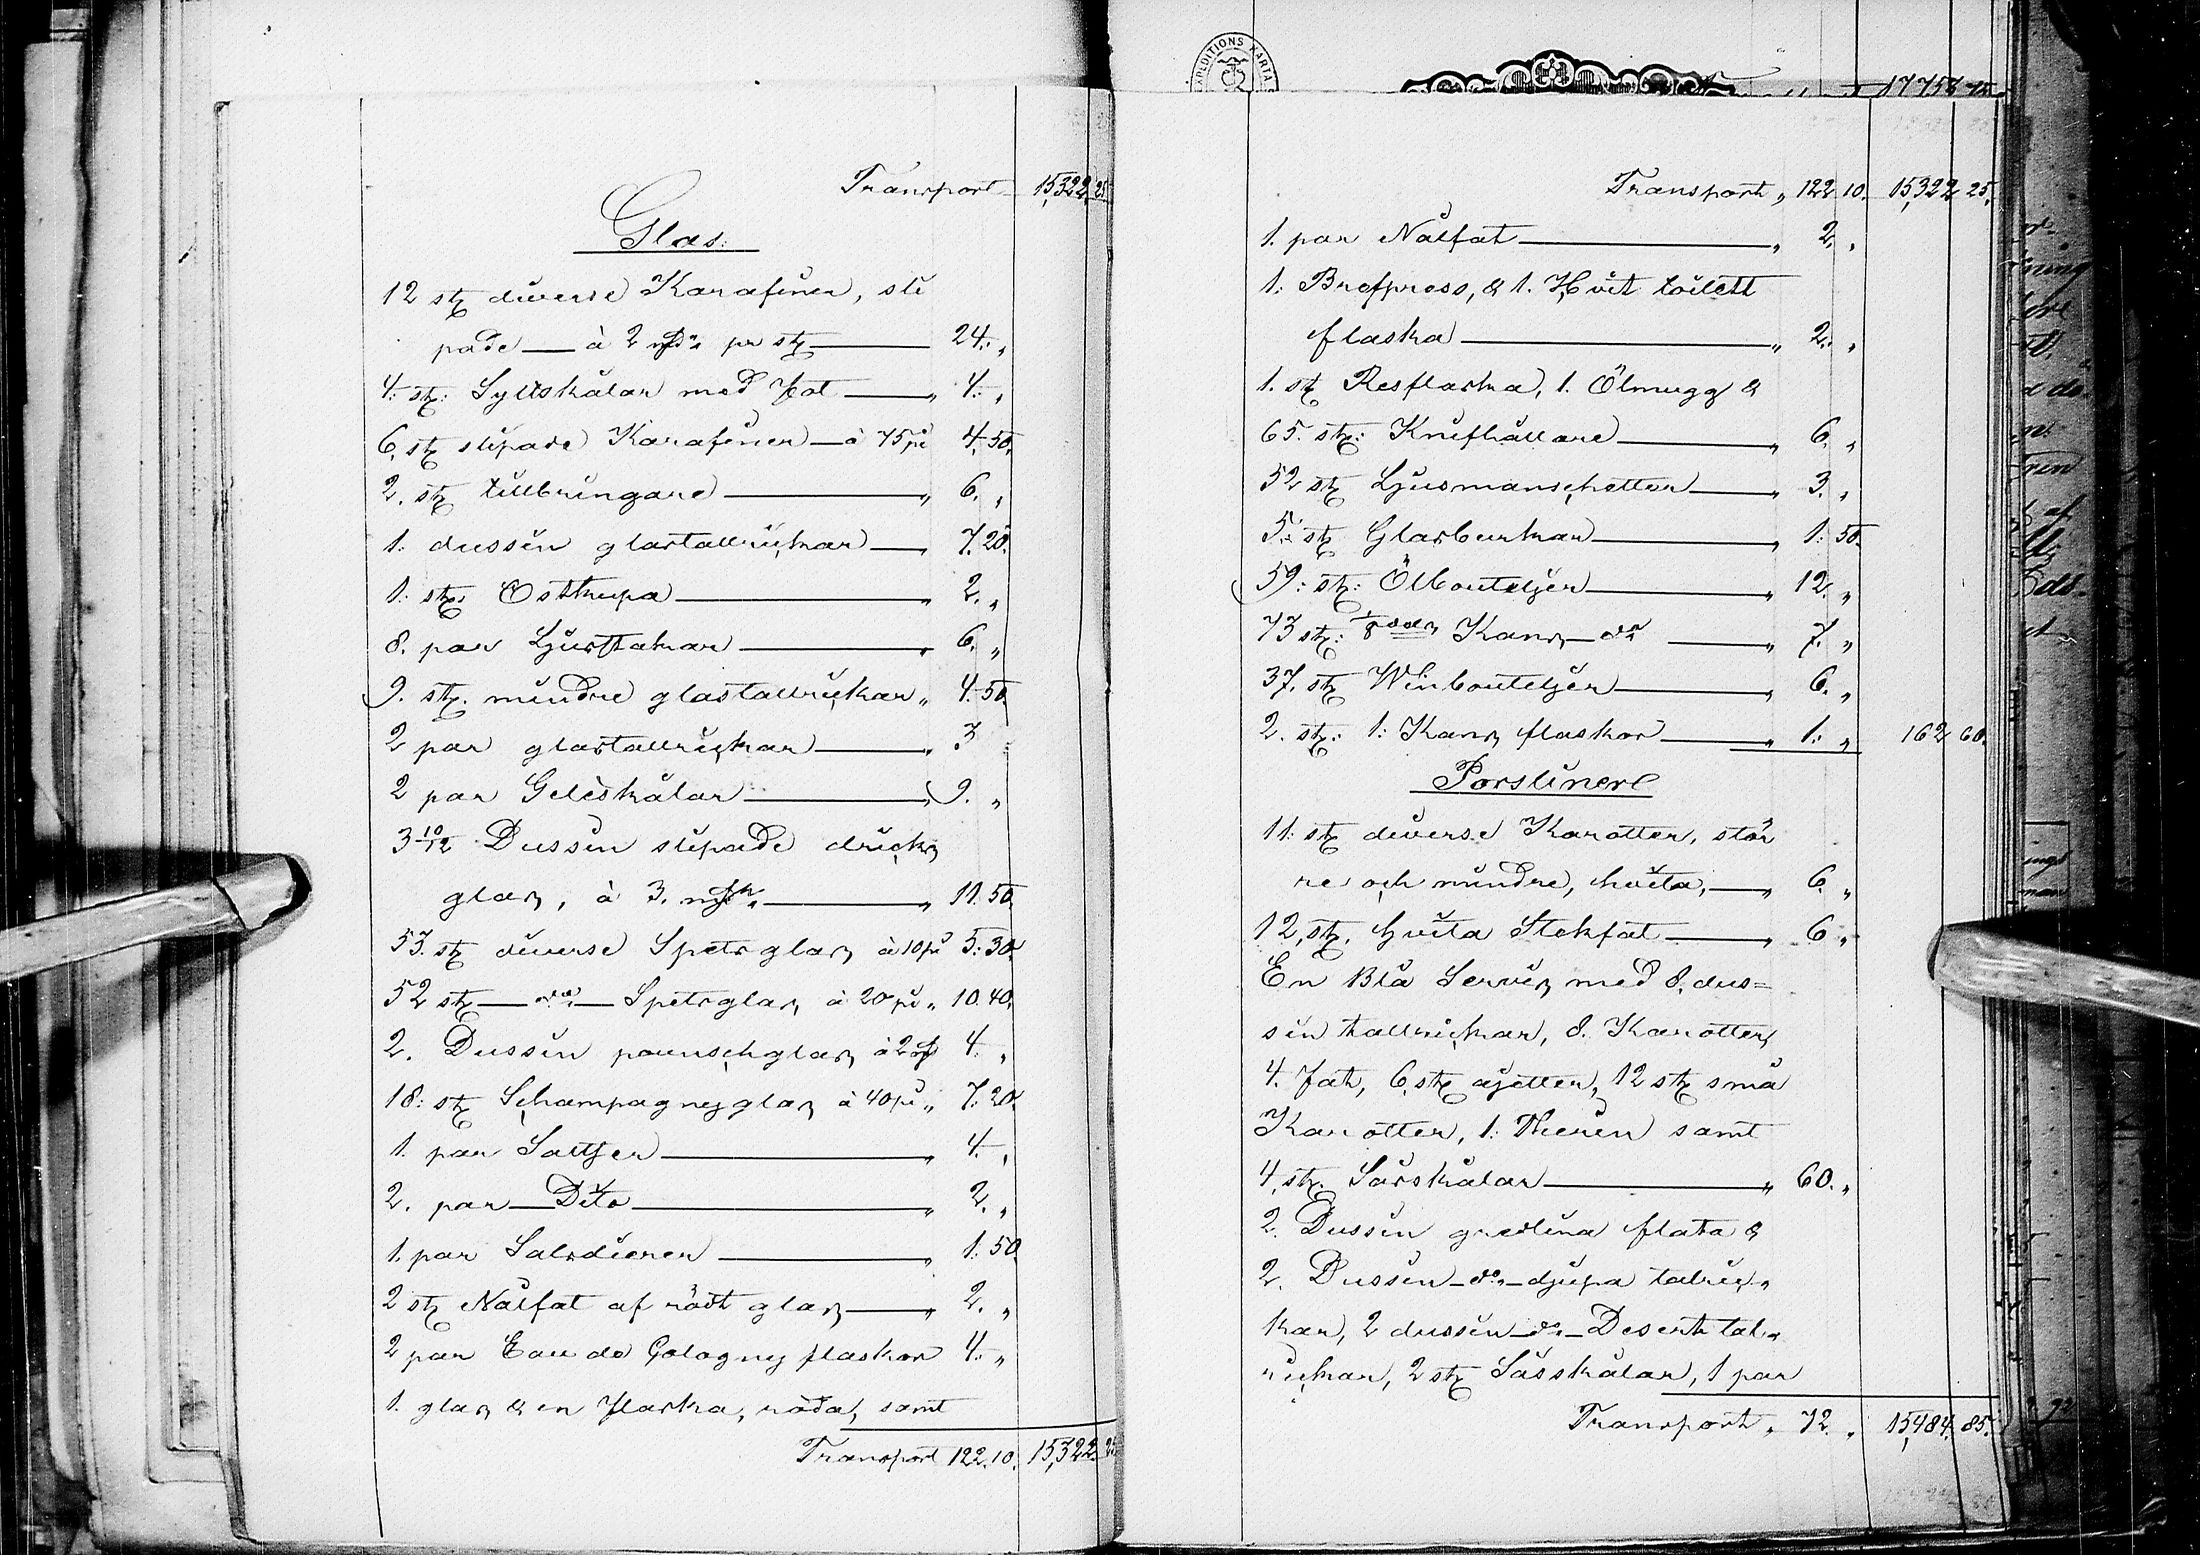 Transport 15,322 25
Glas.
12 st diverse Karafiner, sli
pade — à 2 pr st — 24. „
4. st: Syltskålar med Fat — „ 4. „
6. st slipade Karafiner — à 75 4. 50.
2. st tillbringare — „ 6. „
1. dussin glastallrickar — „ 7. 20.
1. st. Ostkupa — „ 2. „
8. par Ljusstakar — „ 6. „
9. st. mindre glastallrickar „ 4. 50.
2 par glastallrickar — „ 3
2 par Geléskålar — „ 9. „
3 10/12 Dussin slipade dricks
glas, à 3. — „ 11. 50.
53. st diverse Spets glas à 10 5. 30.
52 st — do — Spetsglas à 20 „ 10. 40.
2. Dussin pounschglas à 2 4. „
18: st Schampagneglas à 40 „ 7. 20.
1. par — „ 4. „
2. par — Dito — „ 2. „
1. par Salsdierer — „ 1. 50.
2 st Nålfat af rödt glas — „ 2. „
2 par Eau de Cologne flaskor 4. „
1. glas & en Flaska, röda, samt
Transport 122. 10. 15,322. 25
17 757
EXPEDITIONS KARTA
Transport „ 122 10. 15,322 25.
1. par Nålfat — „ 2. „
1. Brefpress, & 1. Hvit toilett
flaska — „ 2. „
1. st Resflaska, 1. Ölmugg &
65. st: Knifhållare — „ 6. „
52 st Ljusmanschetter — „ 3. „
5. st Glasburkar — „ 1. 50.
59: st: Ölbouteljer — „ 12. „
73 st: 1/8 dels Kans — do — „ 7. „
37. st Winbouteljer — „ 6. „
2. st: 1: Kans flaskor — „ 1. „ 162 60.
Porsliner
11: st diverse Karotter, stör
re och mindre, hvita, — „ 6. „
12, st. hvita Stekfat — „ 6. „
En Blå Servis med 8. dus=
sin tallrickar, 8. Karotter,
4. Fat, 6. st ajetter, 12 st små
Karotter, 1: Therin samt
4. st. Såsskålar — „ 60. „
2. Dussin gredlina flata &
2. Dussin — do — djupa talric„
kar, 2 dussin — do — Desert tal„
rickar, 2 st Såsskålar, 1 par
Transport „ 72. „ 15,484. 85.